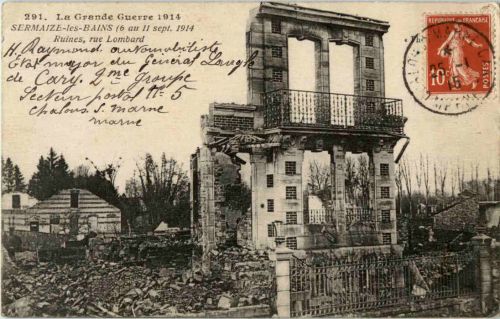 291. La Grande Guerre 1914
SERMAIZE-les-BAINS (6 au 11 sept. 1914
Ruines, rue Lombard
H. Raymond automobiliste
Etat major du General Langle
de Cary 2me Groupe
Secteur postal No 5
Chalons S/ Marne
marne
REPUBLIQUE FRANÇAISE
10c
POSTES